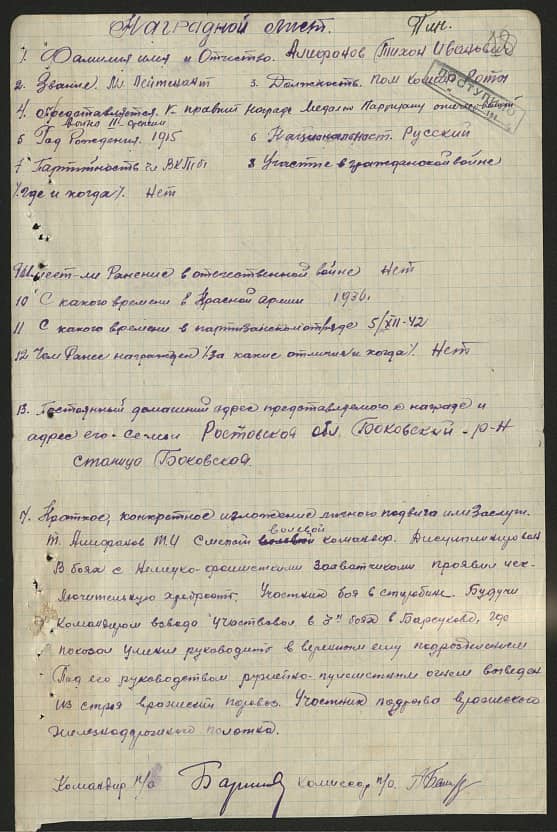 Наградной лист.
1. Фамилия имя и Отчество. Анифонов Тихон Иванович
2. Звание. Мл Лейтенант 3. Должность. Пом Команд. Роты
ПОСТУПИЛО
4. Представляется к- правит награде Медаль Партизану отечественной
войны II-степени
5 Год Рождения. 1915 6 Национальност. Русский
7 Партийность чл ВКП(б) 8 Участие в гражданской войне
/где и когда/. Нет
9 Имеет-ли Ранение в отечественной войне Нет
10 С какого времени в Красной армии 1936г
11 С какого времени в партизанском отряде 5/XII-42
12 Чем Ранее награжден /за какие отличия и когда/. Нет
13. Постоянный домашний адрес представляемого о награде и
адрес его- Семьи Ростовская обл. Боковский-р-н
станица Боковской.
Краткое, конкретное изложение личного подвига или Заслуг.
волевой
Т. Анифонов Т.И Смелый командир. Дисциплинирован
В боях с Немецко-фашистскими Захватчиками проявил иск-
лючительную храбрость. Участник боя в
Командуром взвода Участвовал в 3х боях в Барсуково, где
показал Умелым руководить в вверенным ему подразделением
Под его руководством ружейно-пулеметным огнем выведен
из строя вражеский паровоз. Участник подрыва вражеского
Железнодорожного полотна.
Командир п/о комиссар п/о